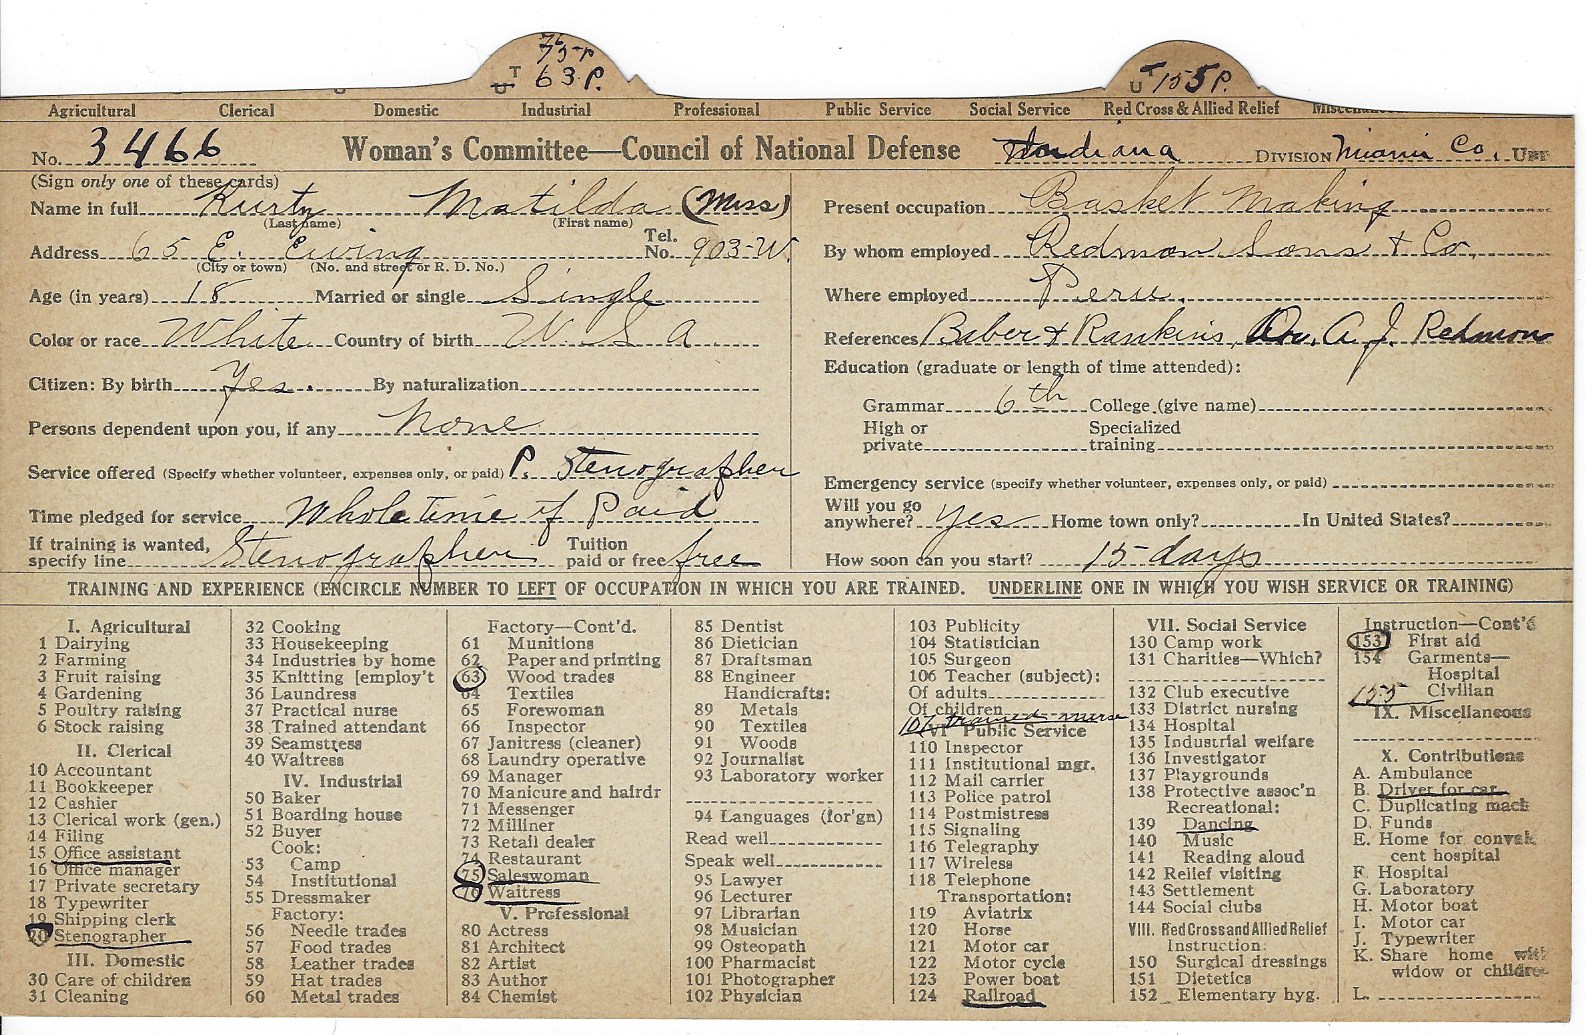 76
75-P
T 63 P.
U
T 155 P.
U
Agricultural Clerical Domestic Industrial Professional Public Service Social Service Red Cross & Allied Relief
No. 3466 Woman's Committee—Council of National Defense Indiana DIVISION Miami Co. UNIT
(Sign only one of these cards)
Name in full Kurtz Matilda (Miss)
(Last name) (First name)
Address 65 E. Ewing Tel. No. 903-W.
(City or town) (No. and street or R. D. No.)
Age (in years) 18 Married or single Single
Color or race White Country of birth U. S. A
Citizen: By birth Yes. By naturalization
Persons dependent upon you, if any None
Service offered (Specify whether volunteer, expenses only, or paid) P. Stenographer
Time pledged for service Whole time if Paid
If training is wanted, specify line Stenographer Tuition paid or free free
Present occupation Basket Making
By whom employed Redmon Sons & Co.
Where employed Peru.
References Baber & Rankins, A. J. Redmon
Education (graduate or length of time attended):
Grammar 6th College (give name)
High or private Specialized training
Emergency service (specify whether volunteer, expenses only, or paid)
Will you go anywhere? yes Home town only? In United States?
How soon can you start? 15 days
TRAINING AND EXPERIENCE (ENCIRCLE NUMBER TO LEFT OF OCCUPATION IN WHICH YOU ARE TRAINED. UNDERLINE ONE IN WHICH YOU WISH SERVICE OR TRAINING)
I. Agricultural
1 Dairying
2 Farming
3 Fruit raising
4 Gardening
5 Poultry raising
6 Stock raising
II. Clerical
10 Accountant
11 Bookkeeper
12 Cashier
13 Clerical work (gen.)
14 Filing
15 Office assistant
16 Office manager
17 Private secretary
18 Typewriter
19 Shipping clerk
20 Stenographer
III. Domestic
30 Care of children
31 Cleaning
32 Cooking
33 Housekeeping
34 Industries by home
35 Knitting [employ't
36 Laundress
37 Practical nurse
38 Trained attendant
39 Seamstress
40 Waitress
IV. Industrial
50 Baker
51 Boarding house
52 Buyer
Cook:
53 Camp
54 Institutional
55 Dressmaker
Factory:
56 Needle trades
57 Food trades
58 Leather trades
59 Hat trades
60 Metal trades
Factory—Cont'd.
61 Munitions
62 Paper and printing
63 Wood trades
64 Textiles
65 Forewoman
66 Inspector
67 Janitress (cleaner)
68 Laundry operative
69 Manager
70 Manicure and hairdr
71 Messenger
72 Milliner
73 Retail dealer
74 Restaurant
75 Saleswoman
76 Waitress
V. Professional
80 Actress
81 Architect
82 Artist
83 Author
84 Chemist
85 Dentist
86 Dietician
87 Draftsman
88 Engineer
Handicrafts:
89 Metals
90 Textiles
91 Woods
92 Journalist
93 Laboratory worker
94 Languages (for'gn)
Read well
Speak well
95 Lawyer
96 Lecturer
97 Librarian
98 Musician
99 Osteopath
100 Pharmacist
101 Photographer
102 Physician
103 Publicity
104 Statistician
105 Surgeon
106 Teacher (subject):
Of adults
Of children
107 trained nurse
VI Public Service
110 Inspector
111 Institutional mgr.
112 Mail carrier
113 Police patrol
114 Postmistress
115 Signaling
116 Telegraphy
117 Wireless
118 Telephone
Transportation:
119 Aviatrix
120 Horse
121 Motor car
122 Motor cycle
123 Power boat
124 Railroad
VII. Social Service
130 Camp work
131 Charities—Which?
132 Club executive
133 District nursing
134 Hospital
135 Industrial welfare
136 Investigator
137 Playgrounds
138 Protective assoc'n
Recreational:
139 Dancing
140 Music
141 Reading aloud
142 Relief visiting
143 Settlement
144 Social clubs
VIII. Red Cross and Allied Relief
Instruction:
150 Surgical dressings
151 Dietetics
152 Elementary hyg.
Instruction—Cont'd
153 First aid
154 Garments—
Hospital
155 Civilian
IX. Miscellaneous
X. Contributions
A. Ambulance
B. Driver for car
C. Duplicating mach
D. Funds
E. Home for convales
cent hospital
F. Hospital
G. Laboratory
H. Motor boat
I. Motor car
J. Typewriter
K. Share home with
widow or children
L.